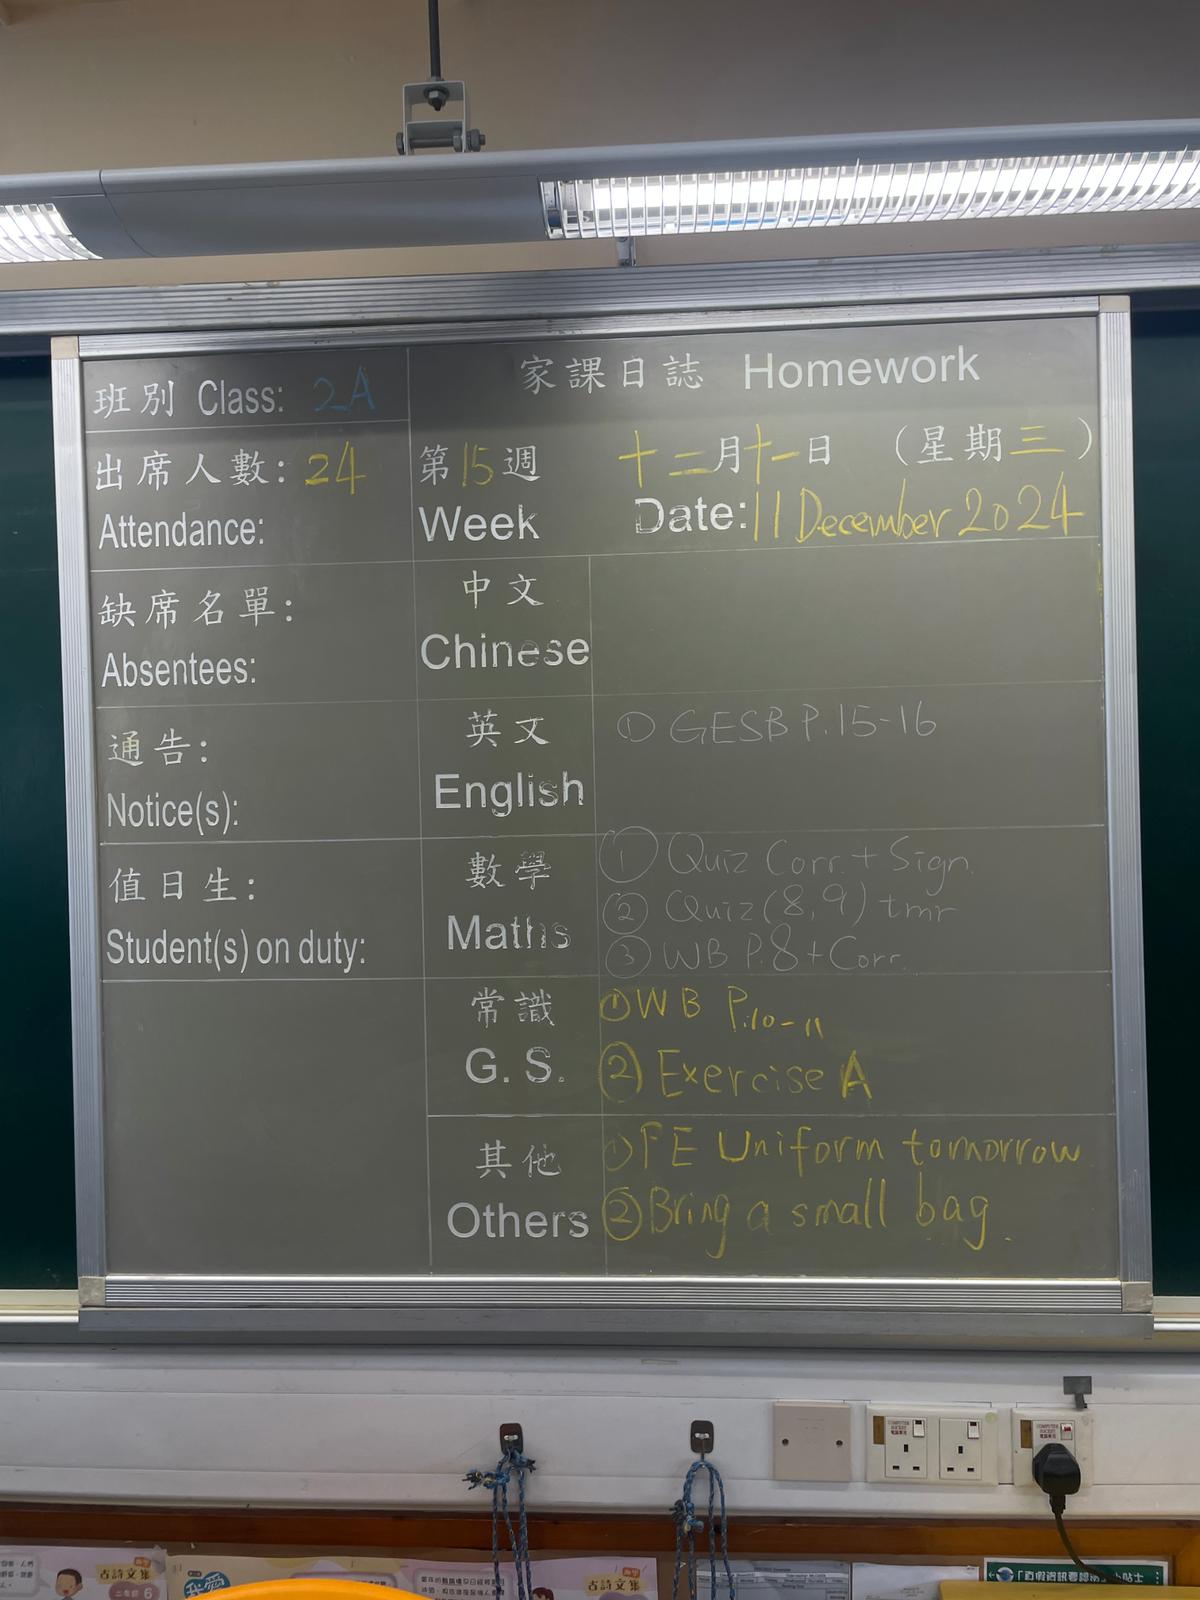 班別 Class: 2A
家課日誌 Homework
出席人數: 24
Attendance:
第15週
Week
十二月十一日 (星期三)
Date: 11 December 2024
缺席名單:
Absentees:
中文
Chinese
通告:
Notice(s):
英文
English
① GESB P.15-16
值日生:
Student(s) on duty:
數學
Maths
① Quiz Corr. + Sign.
② Quiz (8,9) tmr
③ WB P.8 + Corr.
常識
G. S.
① WB P.10-11
② Exercise A
其他
Others
① PE Uniform tomorrow
② Bring a small bag.
COMPUTER SOCKET
COMPUTER SOCKET
古詩文集
二年級 6
我愛
古詩文集